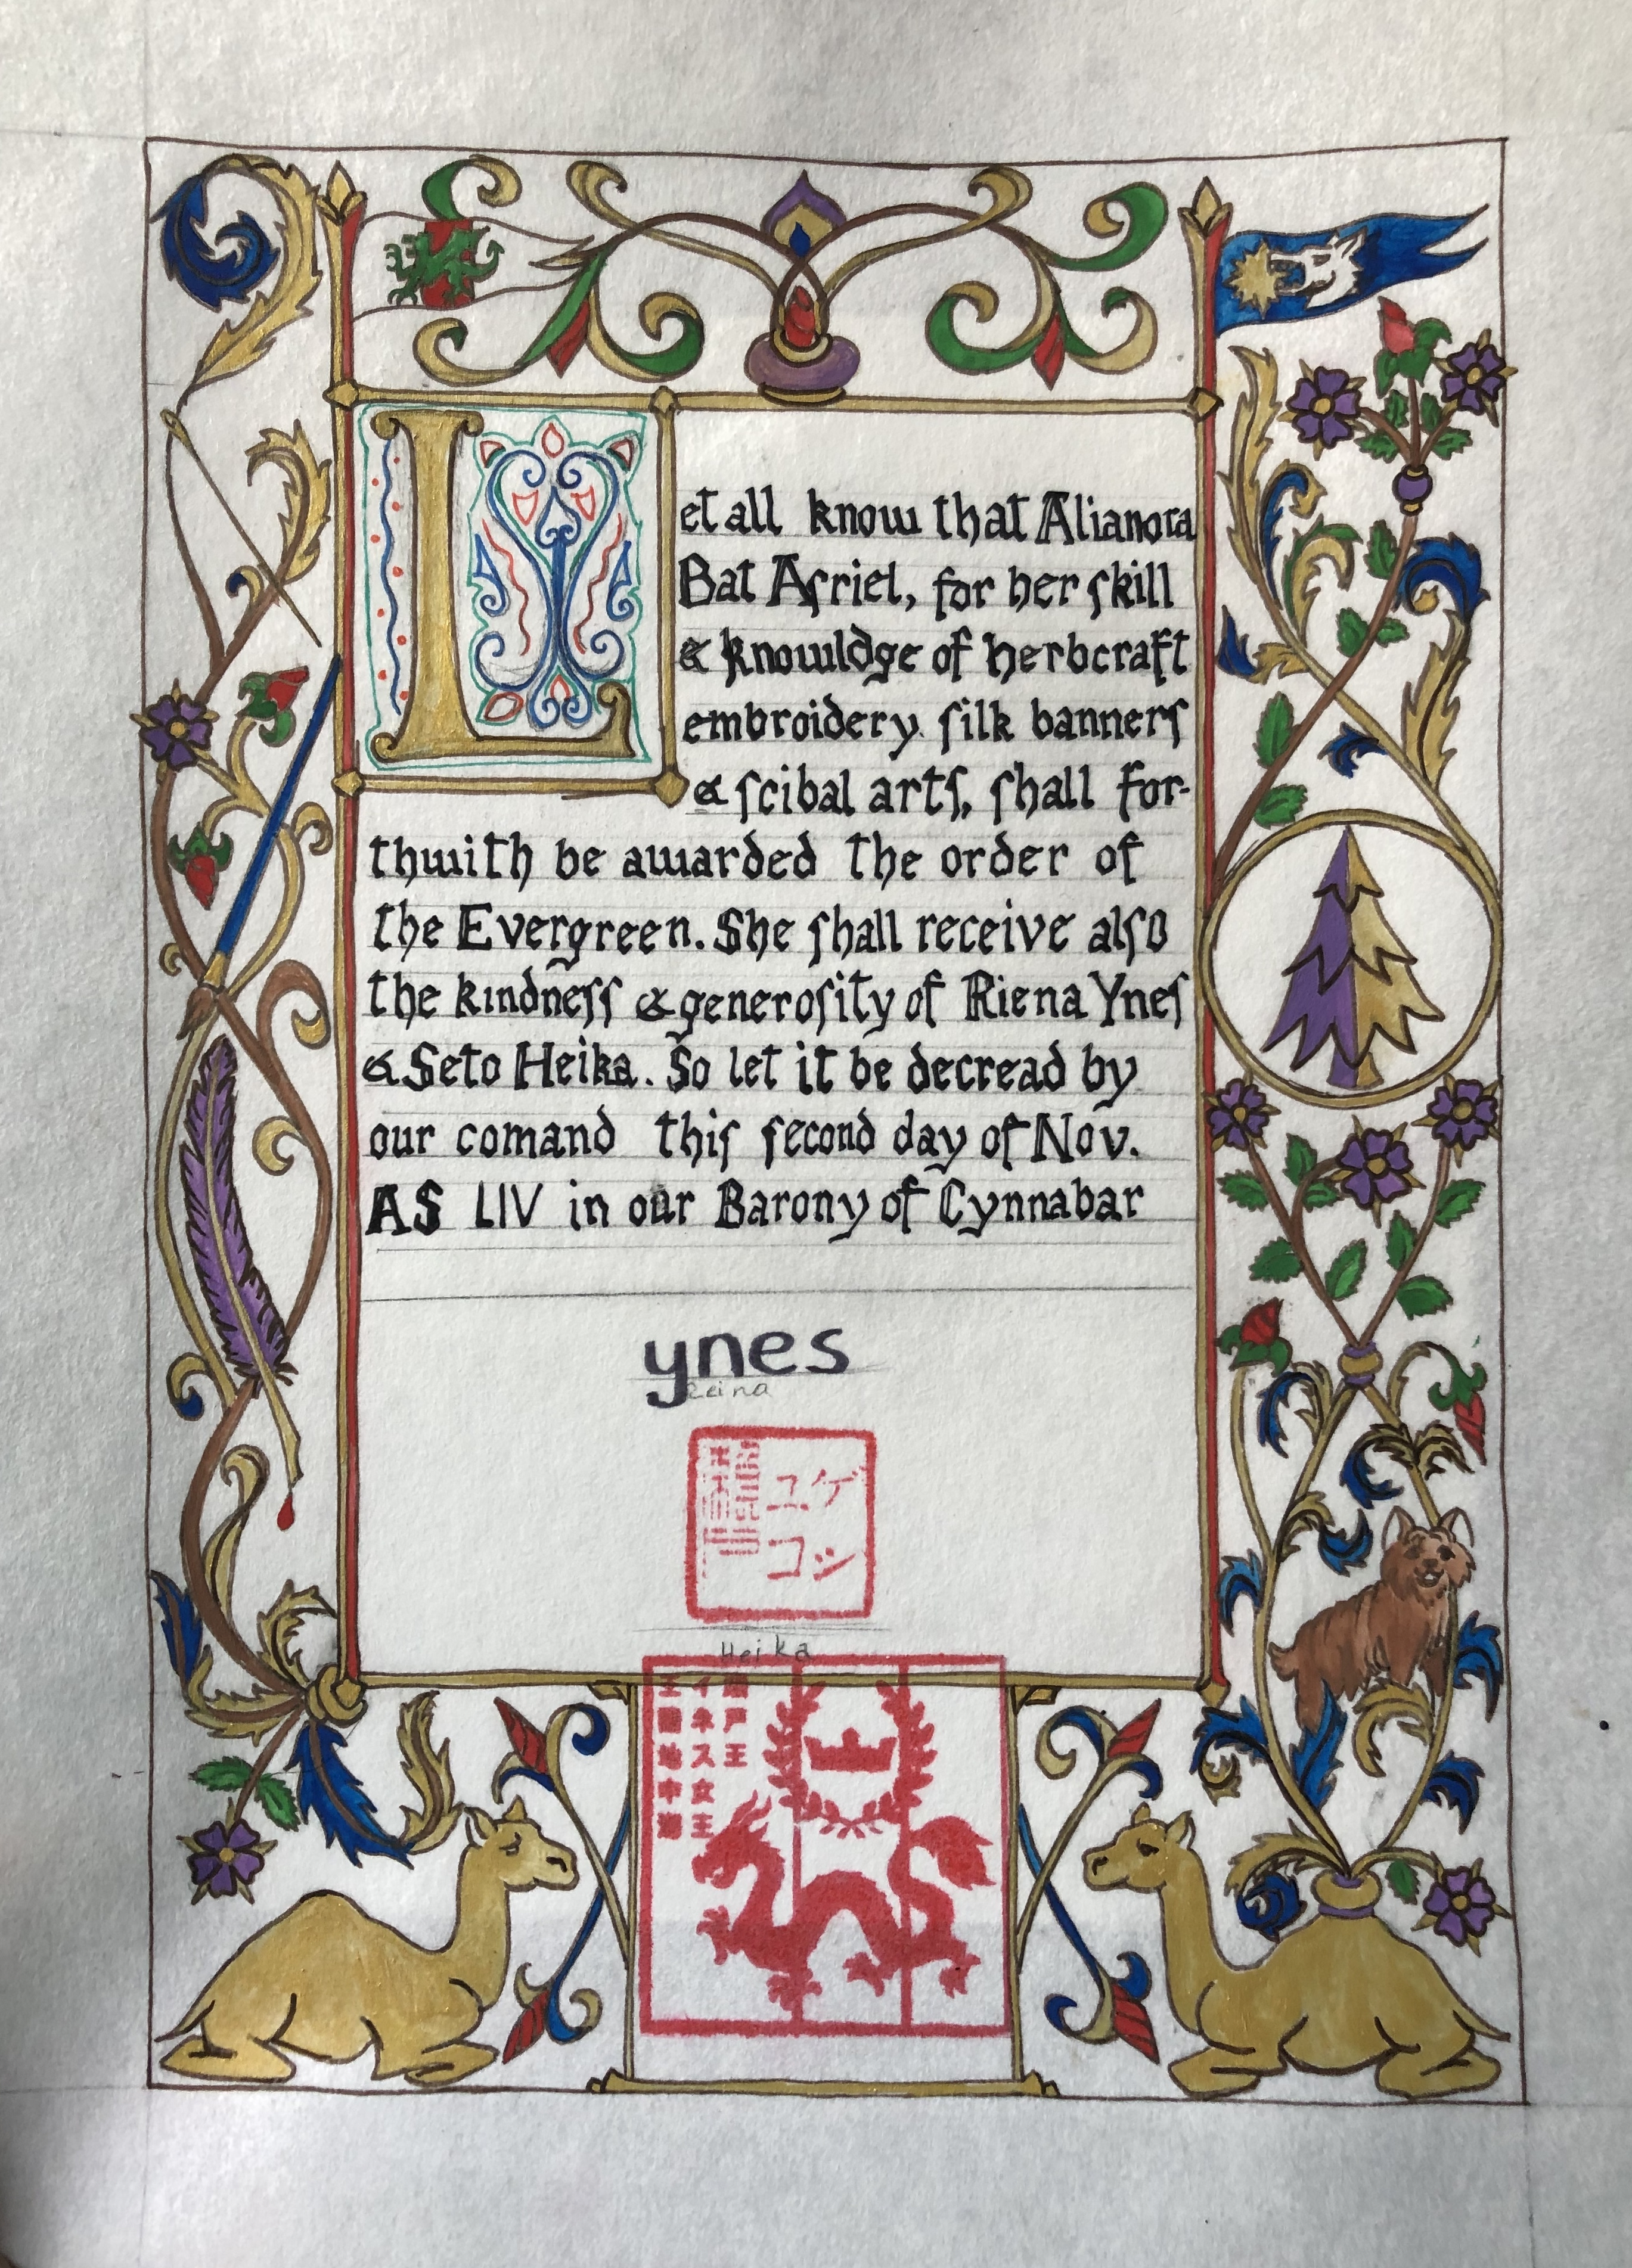 Let all know that Alianora
Bat Asriel, for her skill
& knowuldge of herbcraft
embroidery. silk banners
& scibal arts, shall for-
thwith be awarded the order of
the Evergreen. She shall receive also
the kindness & generosity of Riena Ynes
& Seto Heika. So let it be decread by
our comand this second day of Nov.
AS LIV in our Barony of Cynnabar
ynes
Reina
ユケ
コシ
Heika
戸王
イネス女王